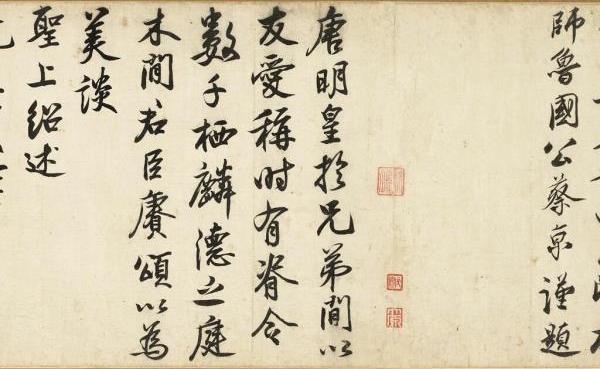 師魯國公蔡京謹題
唐明皇於兄弟間以
友愛稱時有脊令
數千栖麟德之庭
木間君臣賡頌以為
美談
聖上紹述